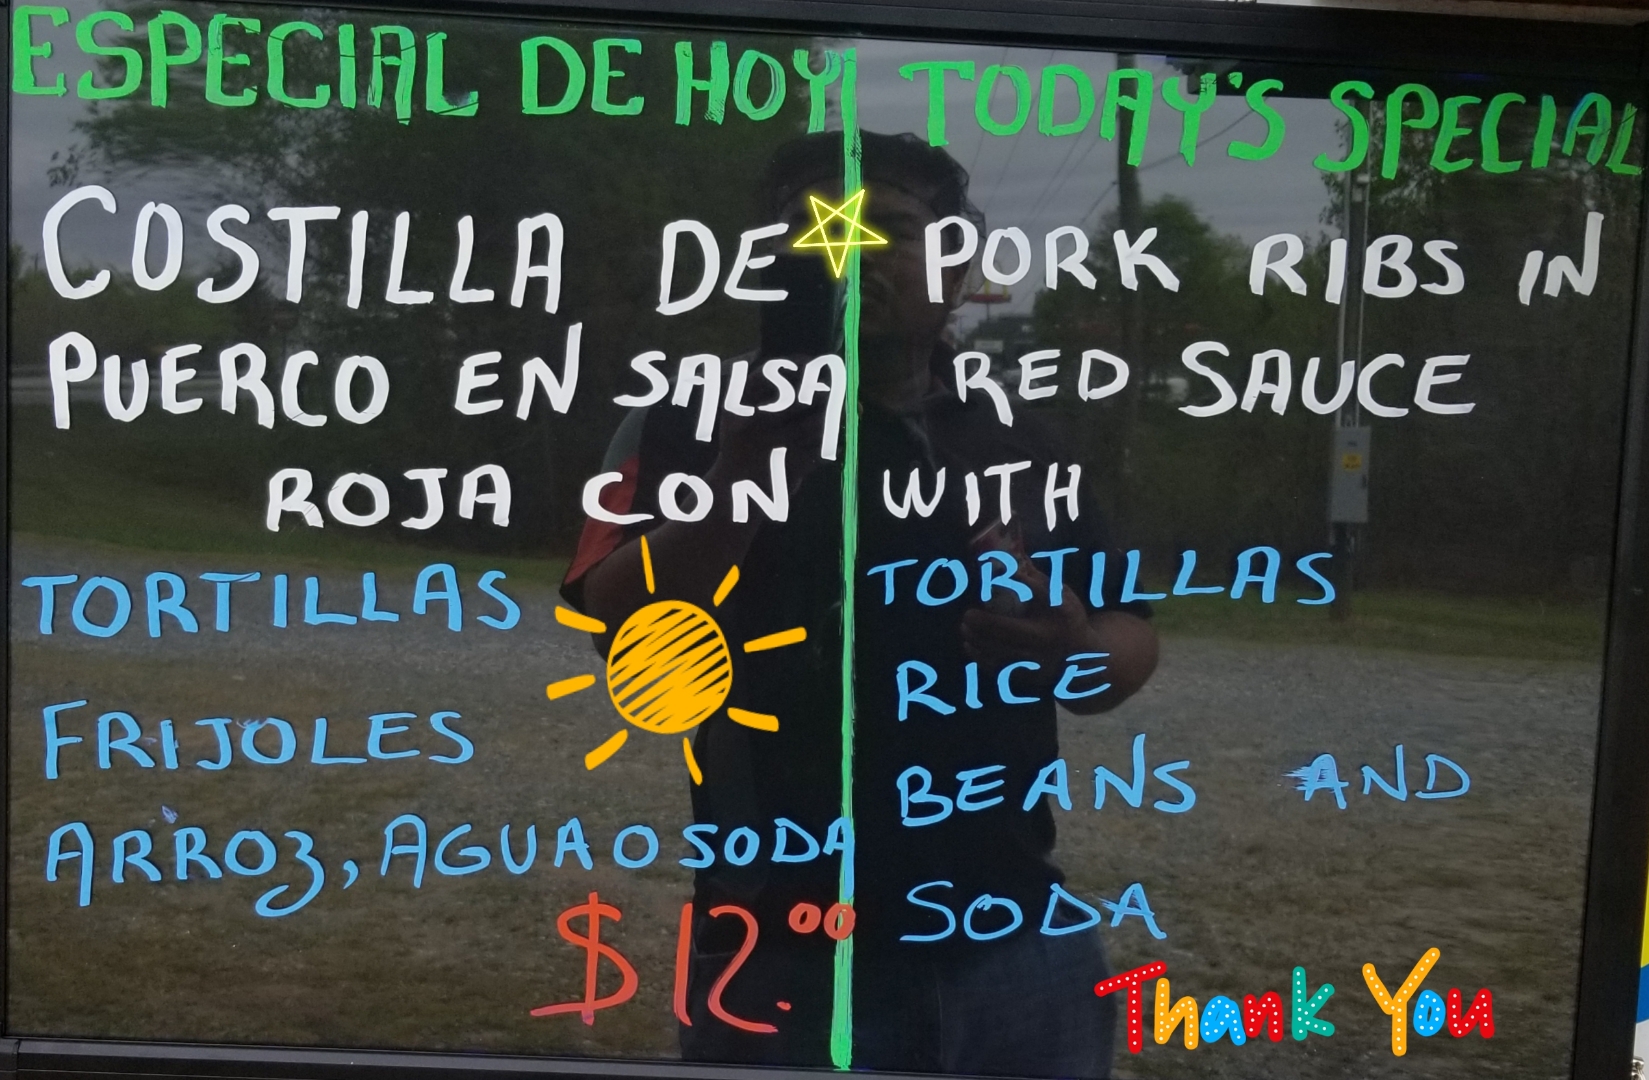 ESPECIAL DE HOY
COSTILLA DE
PUERCO EN SALSA
ROJA CON
TORTILLAS
FRIJOLES
ARROZ, AGUA O SODA
$12.00
TODAY'S SPECIAL
PORK RIBS IN
RED SAUCE
WITH
TORTILLAS
RICE
BEANS AND
SODA
Thank You